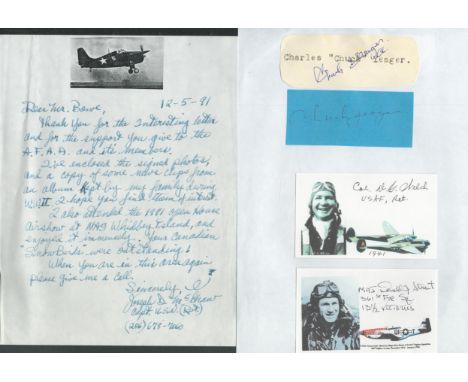 12-5-91
Dear Mr. Bowe,
Thank You for the Interesting letter
and for the support you give to the
A.F.A.A. and its members.
I've enclosed the signed photos,
and a copy of some news clips from
an album kept by my family during
WWII. I hope you find them of interest.
I also attended the 1991 open house
Airshow at NAS Whidbey Island, and
enjoyed it immensely. Your Canadian
Snowbirds were outstanding!
When you are in this area again
please give me a call.
Sincerely,
Joseph D. McGraw
Capt USN (Ret)
Charles "Chuck" Yeager.
Col.
USAF, Ret.
1941
Maj
361st Ftr Gp
13½ victories